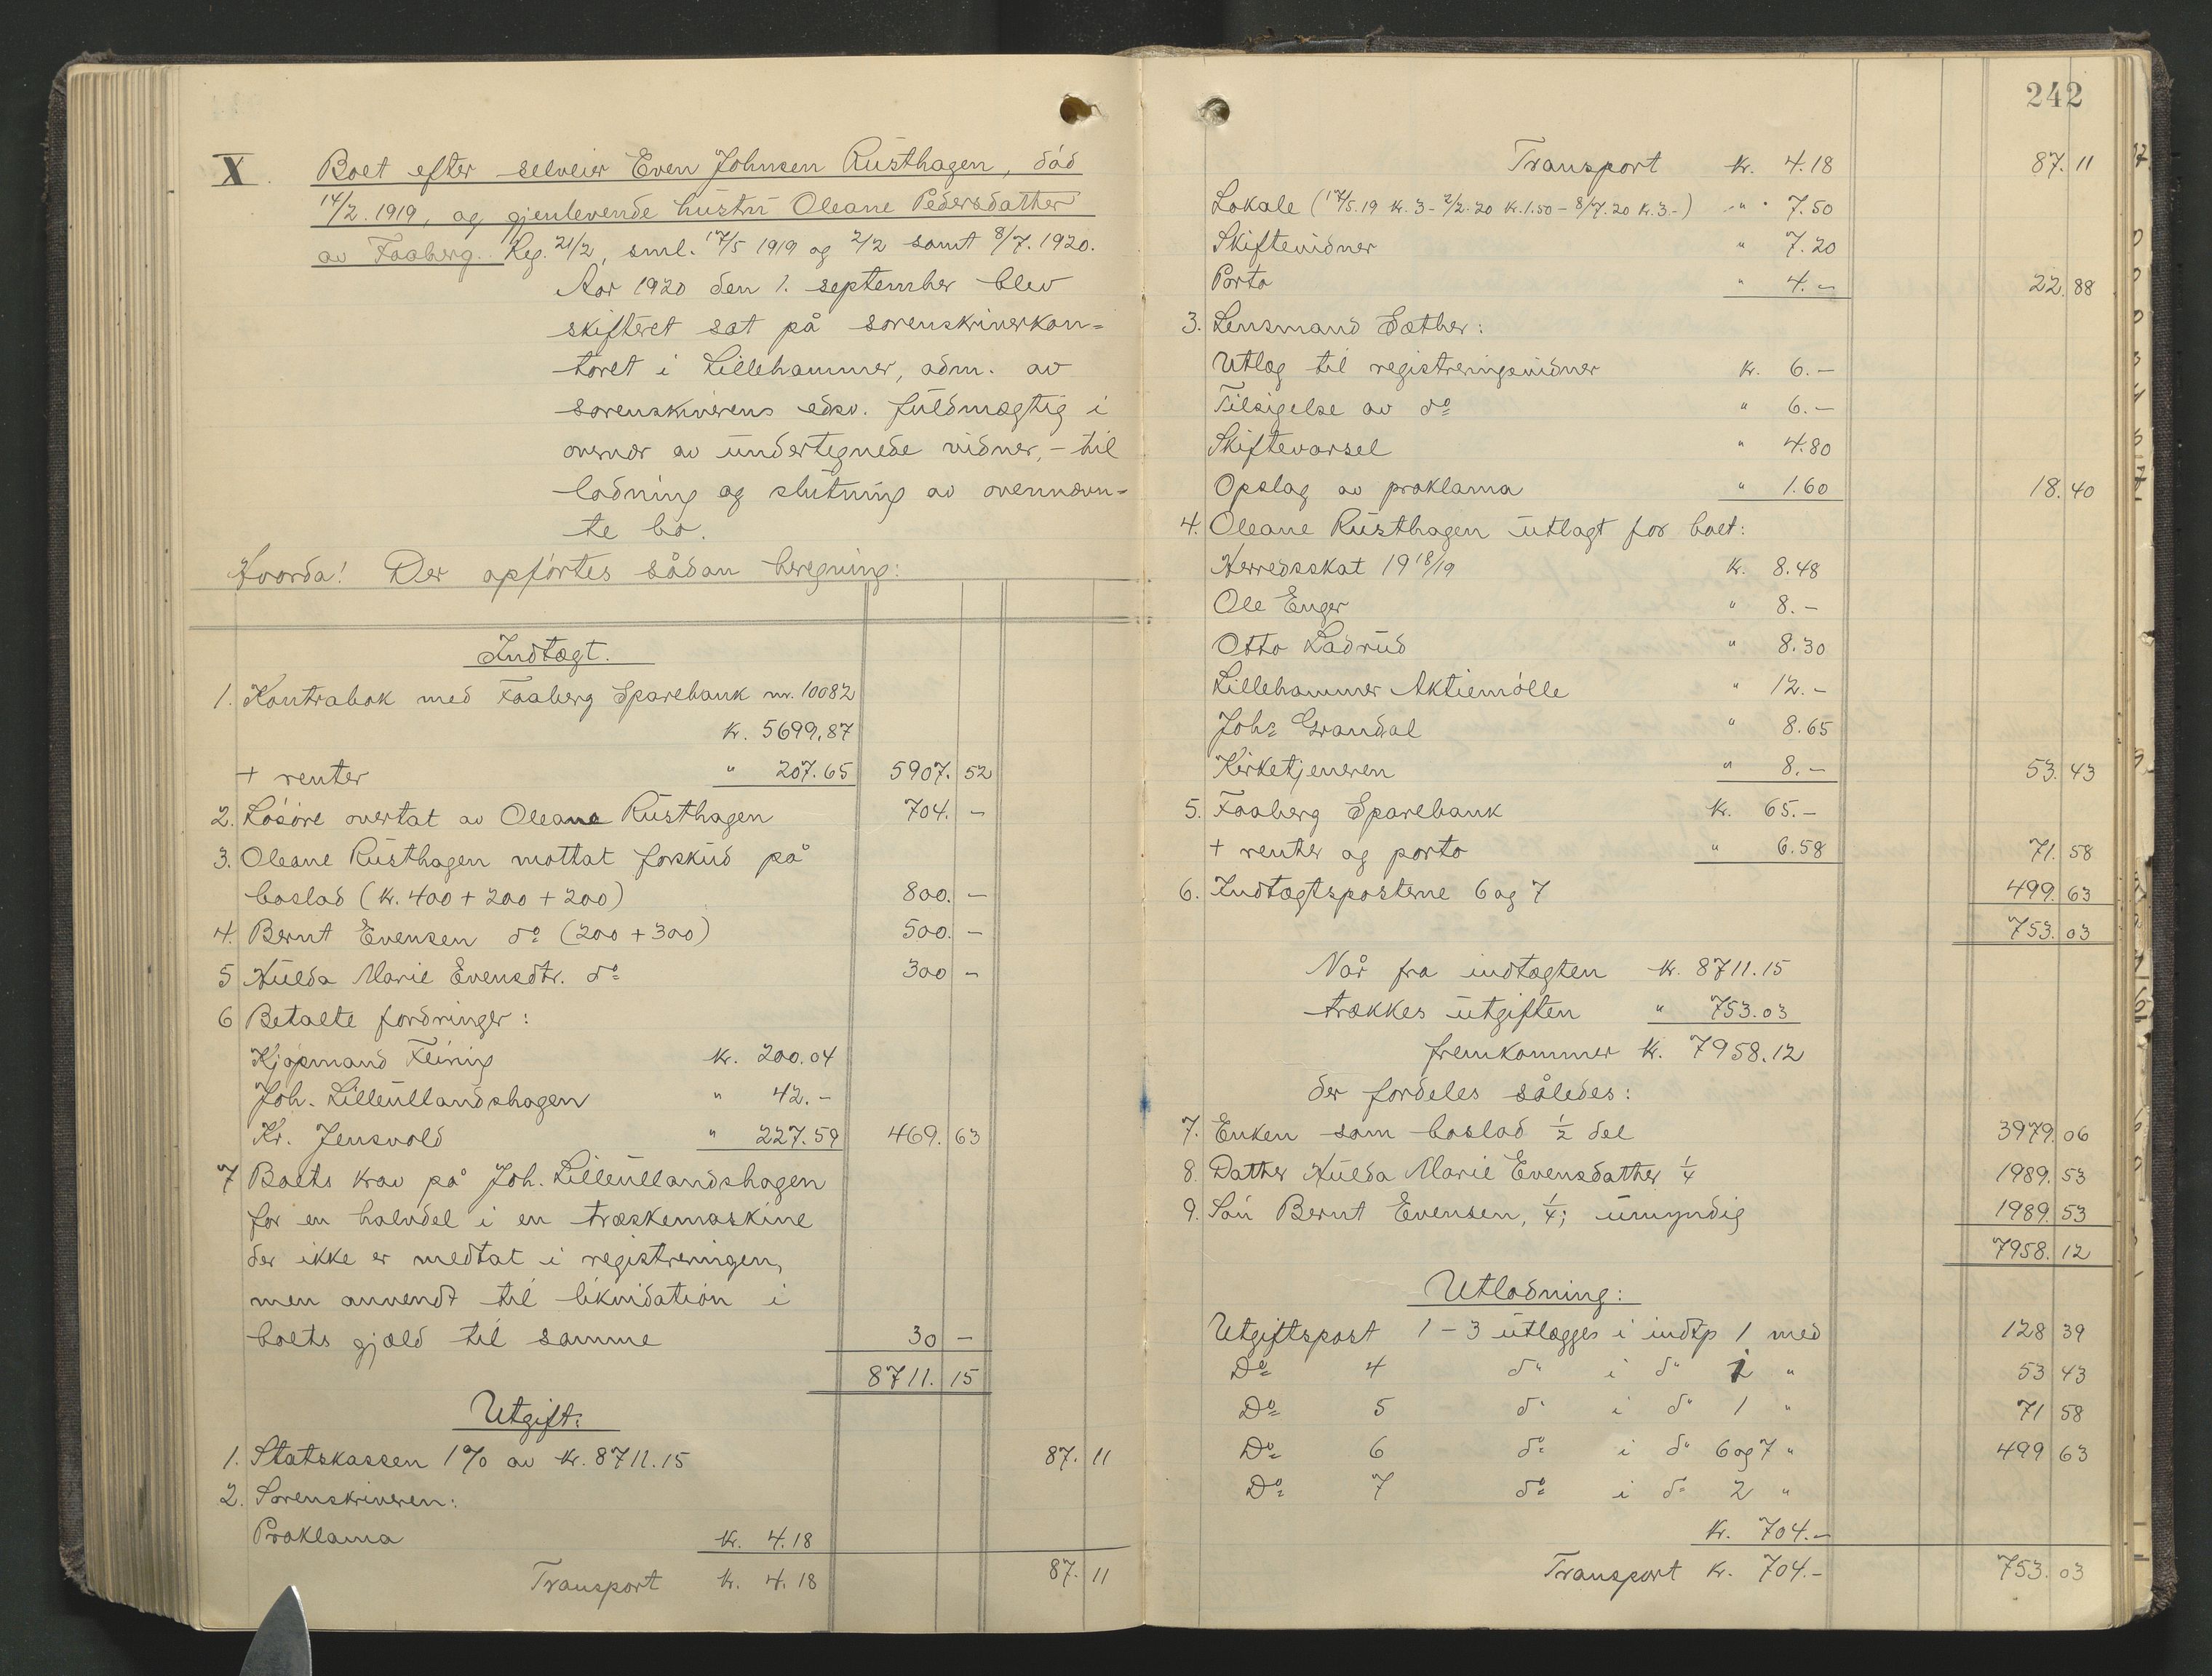 X. Boet efter selveier Even Johnsen Rusthagen, død
14/2. 1919, og gjenlevende hustru Oleane Pedersdatter
av Faaberg. Reg. 21/2, sml. 17/5 1919 og 2/2 samt 8/7. 1920.
Aar 1920 den 1. september blev
skifteret sat på sorenskriverkon=
toret i Lillehammer, adm. av
sorenskriverens edsv. fuldmægtig i
overvær av undertegnede vidner, - til
lodning og slutning av ovennævn=
te bo.
Hvorda! Der opførtes sådan beregning:
Indtægt.
1. Kontrabok med Faaberg Sparebank nr. 10082
kr. 5699.87
+ renter " 207.65 5907. 52
2. Løsøre overtat av Oleane Rusthagen 704. -
3. Oleane Rusthagen mottat forskud på
boslod (kr. 400 + 200 + 200) 800. -
4. Bernt Evensen do (200 + 300) 500. -
5 Hulda Marie Evensdtr. do 300 -
6 Betalte fordringer:
Kjøpmand Fliring kr. 200.04
Joh. Lilleullandshagen " 42.-
Kr. Jensvold " 227.59 469. 63
7 Boets krav på Joh. Lilleullandshagen
for en halvdel i en træskemaskine
der ikke er medtat i registreringen,
men anvendt til likvidation i
boets gjæld til samme 30 -
8711. 15
Utgift:
1. Statskassen 1% av kr. 8711.15 87. 11
2. Sorenskriveren:
Proklama kr. 4.18
Transport kr. 4.18 87. 11
242
Transport kr. 4.18 87. 11
Lokale (17/5.19 kr. 3- 2/2.20 kr. 1.50 - 8/7.20 kr. 3.-) " 7.50
Skiftevidner " 7.20
Porto " 4.- 22. 88
3. Lensmand Sæther:
Utlæg til registreringsvidner kr. 6.-
Tilsigelse av do " 6.-
Skiftevarsel " 4.80
Opslag av proklama " 1.60 18. 40
4. Oleane Rusthagen utlagt for boet:
Herredsskat 1918/19 kr. 8.48
Ole Enger " 8.-
Otto Ladrud " 8.30
Lillehammer Aktiemølle " 12.-
Johs Grandal " 8.65
Kirketjeneren " 8.- 53. 43
5. Faaberg Sparebank kr. 65.-
+ renter og porto " 6.58 71. 58
6. Indtægtsposterne 6 og 7 499. 63
753. 03
Når fra indtægten kr. 8711.15
trækkes utgiften " 753.03
fremkommer kr. 7958.12
der fordeles således:
7. Enken som boslod 1/2 del 3979. 06
8. Datter Hulda Marie Evensdatter 1/4 1989. 53
9. Søn Bernt Evensen, 1/4; umyndig 1989. 53
7958. 12
Utlodning:
Utgiftspost 1 - 3 utlægges i indtp 1 med 128 39
Do 4 do i do 1 " 53 43
Do 5 do i do 1 " 71 58
Do 6 do i do 6 og 7 " 499 63
Do 7 do i do 2 "
kr. 704.-
Transport kr. 704.- 753. 03